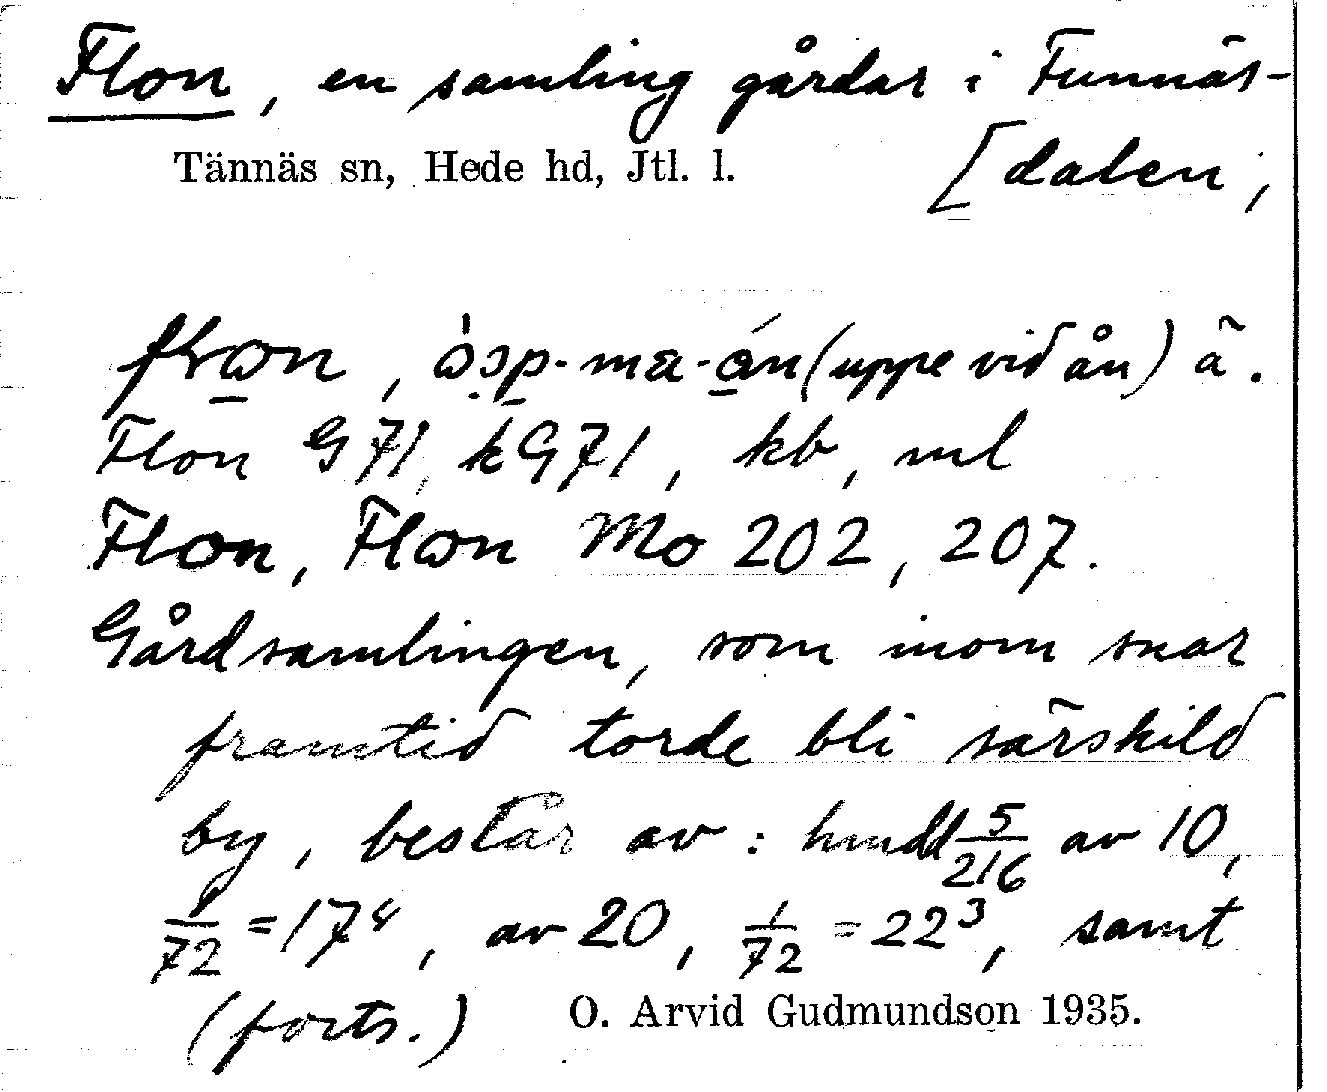 Flon, en samling gårdar i Funnäs-
Tännäs sn, Hede hd, Jtl. l.
[dalen,
(uppe vid ån) ä.
Flon G71, kG71, kb, ml
Flon, Flon Mo 202, 207.
Gårdsamlingen, som inom snar
framtid torde bli särskild
by, består av: hmdl 5/216 av 10,
1/72 = 17⁴, av 20, 1/72 = 22³, samt
(forts.)
O. Arvid Gudmundson 1935.